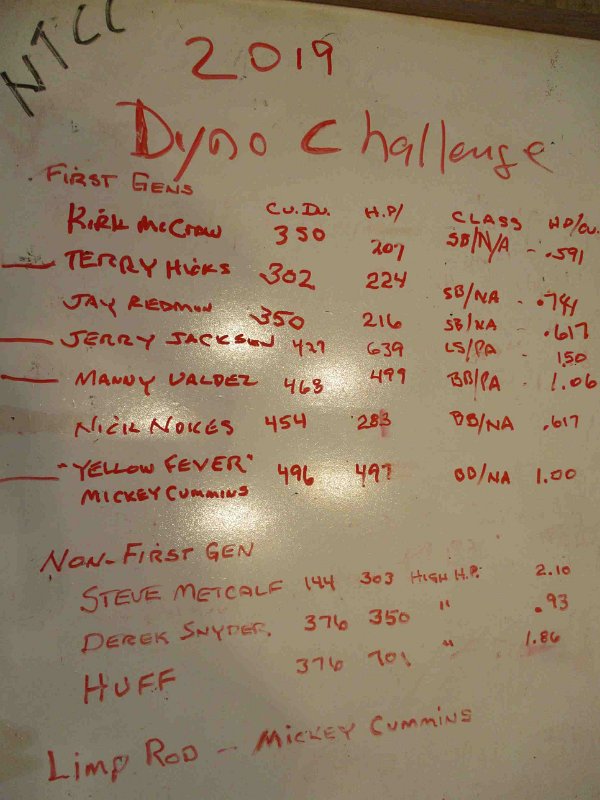 NTCC
2019
Dyno Challenge
FIRST GENS
CU.IN. H.P/ CLASS HP/CU.
KIRK MCCRAW 350 207 SB/N/A - .591
TERRY HICKS 302 224 SB/NA - .741
JAY REDMON 350 216 SB/NA - .617
JERRY JACKSON 427 639 LS/PA - 150
MANNY VALDEZ 468 499 BB/PA - 1.06
NICK NOKES 454 283 BB/NA .617
"YELLOW FEVER" 496 497 BB/NA 1.00
MICKEY CUMMINS
NON-FIRST GEN
STEVE METCALF 144 303 HIGH H.P. 2.10
DEREK SNYDER 376 350 " .93
HUFF 376 701 " 1.86
LIMP ROD -- MICKEY CUMMINS